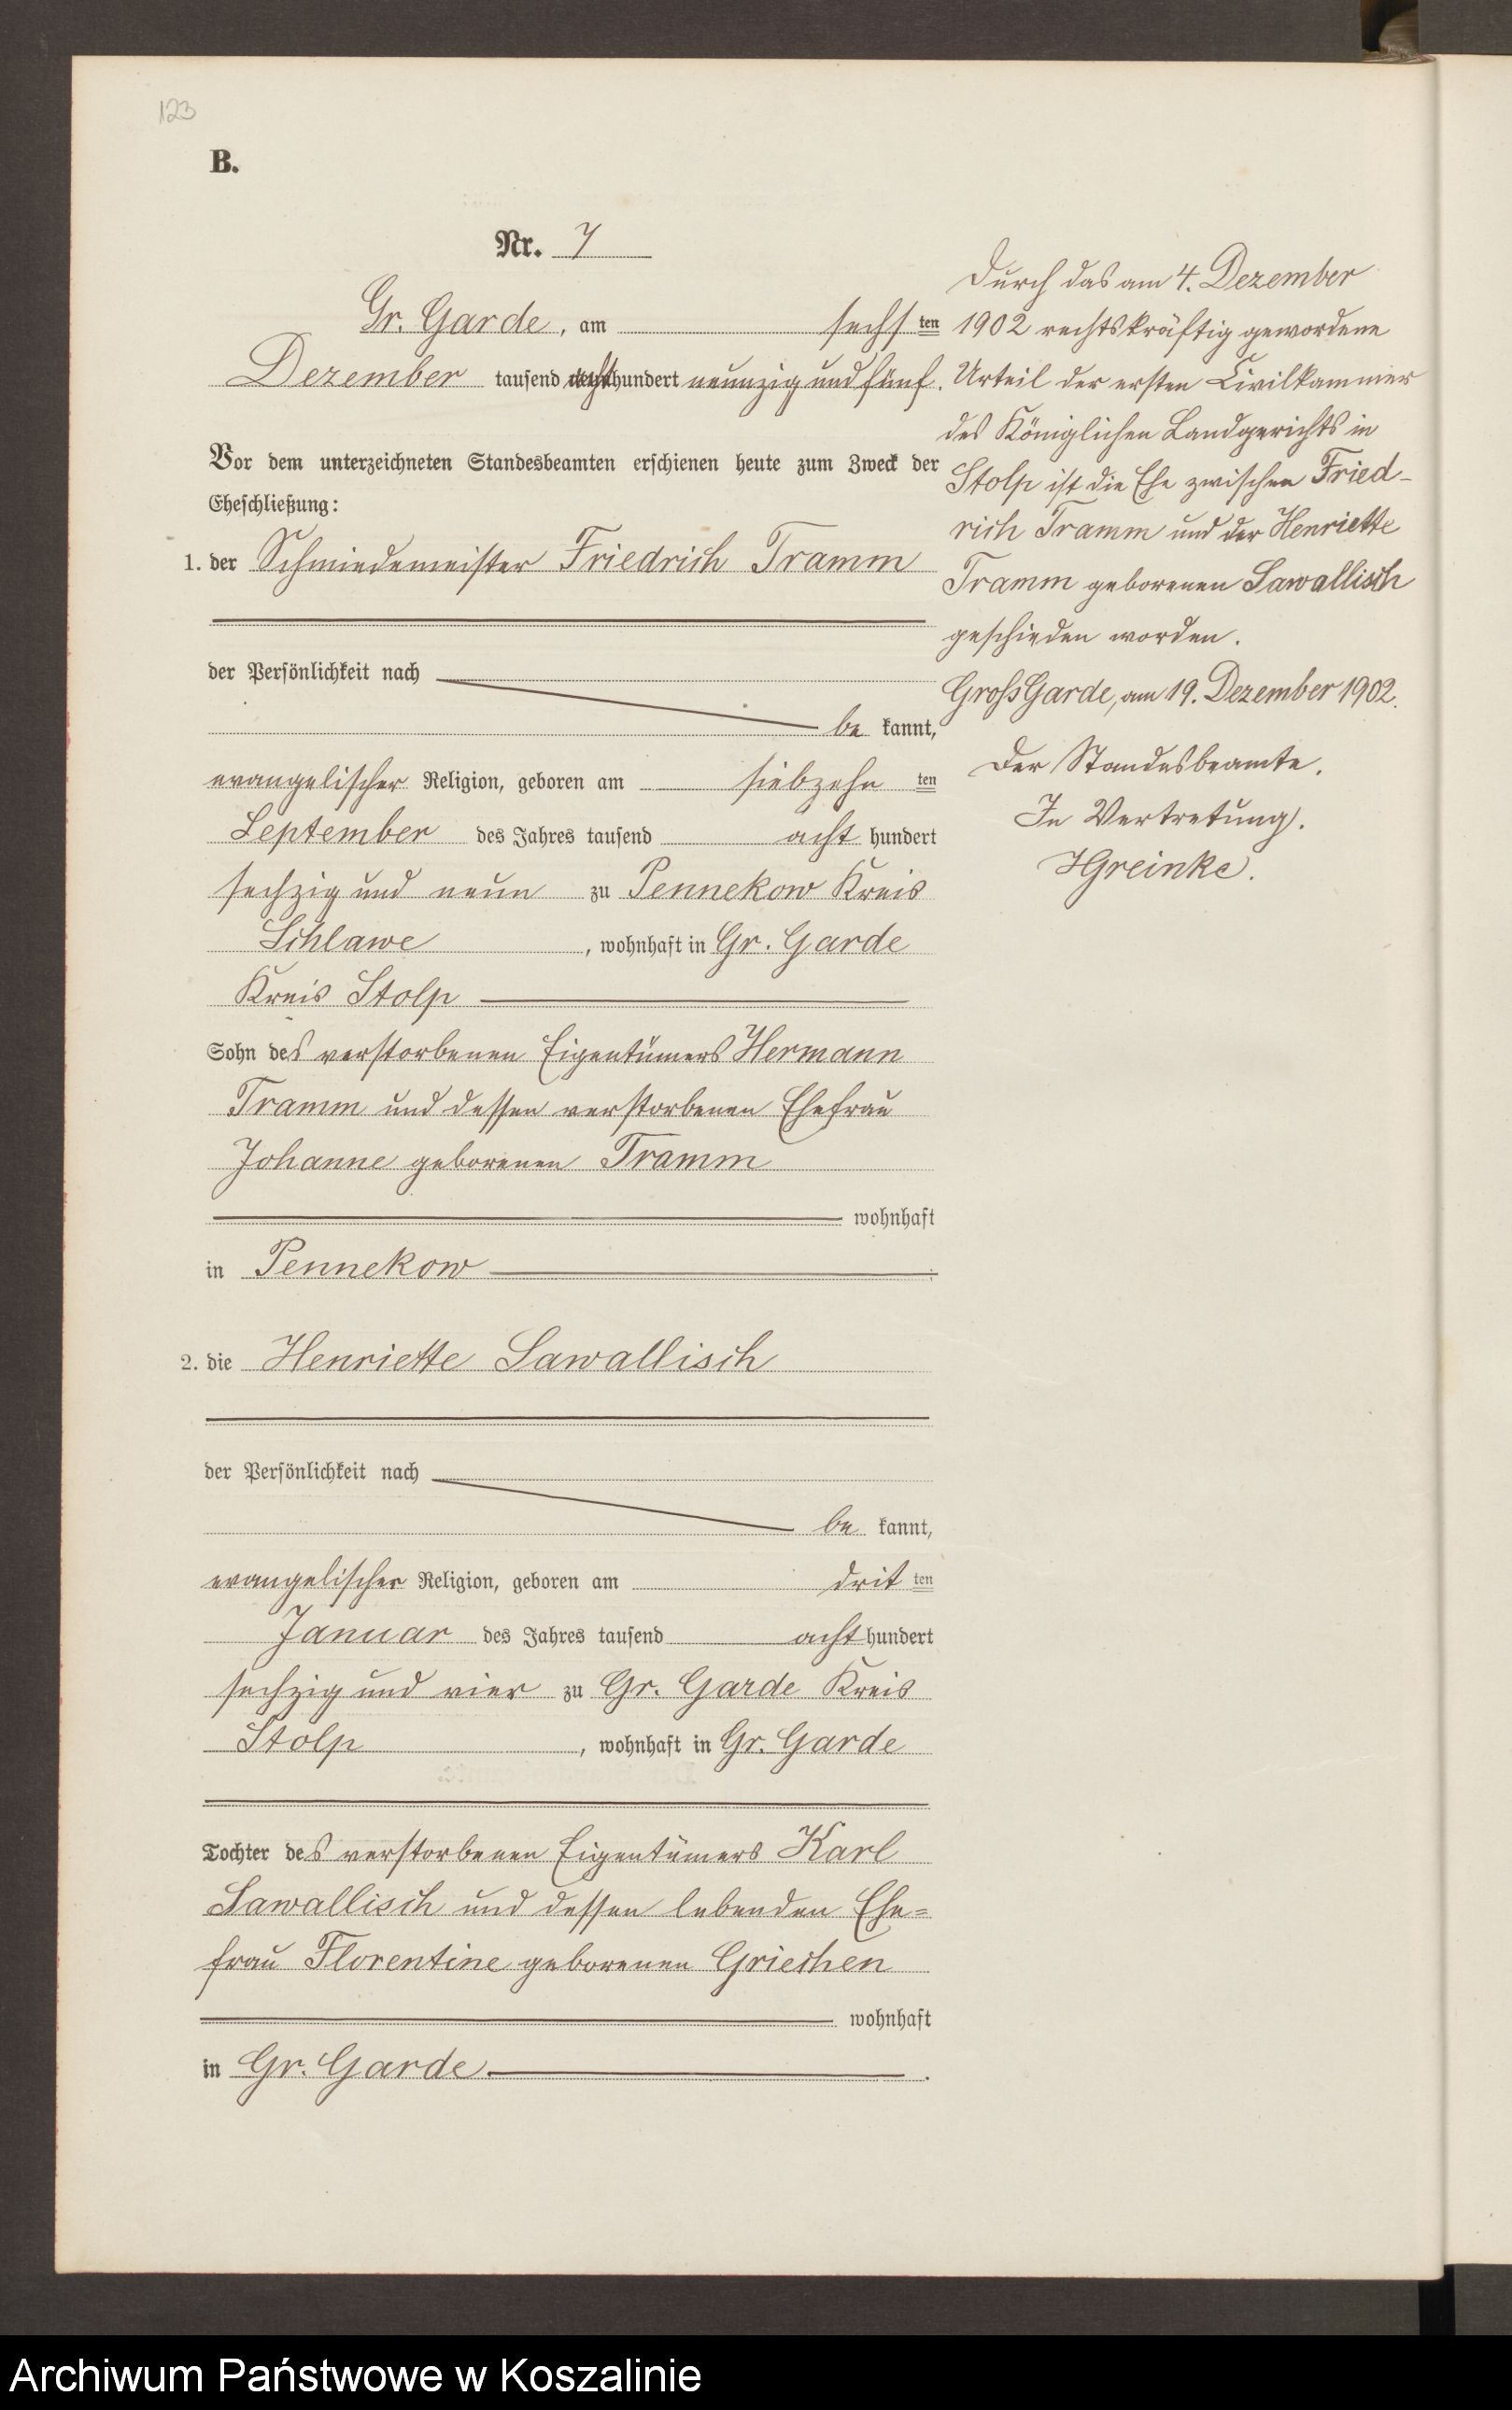 123
B.
Nr. 7
Gr. Garde, am sechsten
Dezember tausend achthundert neunzig und fünf.
Vor dem unterzeichneten Standesbeamten erschienen heute zum Zweck der
Eheschließung:
1. der Schmiedemeister Friedrich Tramm
der Persönlichkeit nach
be kannt,
evangelischer Religion, geboren am siebzehn ten
September des Jahres tausend acht hundert
sechzig und neun zu Pennekow Kreis
Schlawe, wohnhaft in Gr. Garde
Kreis Stolp
Sohn des verstorbenen Eigentümers Hermann
Tramm und dessen verstorbenen Ehefrau
Johanne geborenen Tramm
wohnhaft
in Pennekow
2. die Henriette Sawallisch
der Persönlichkeit nach
be kannt,
evangelischer Religion, geboren am drit ten
Januar des Jahres tausend acht hundert
sechzig und vier zu Gr. Garde Kreis
Stolp, wohnhaft in Gr. Garde
Tochter des verstorbenen Eigentümers Karl
Sawallisch und dessen lebenden Ehe=
frau Florentine geborenen Griechen
wohnhaft
in Gr. Garde.
Durch das am 4. Dezember
1902 rechtskräftig gewordene
Urteil der ersten Civilkammer
des Königlichen Landgerichts in
Stolp ist die Ehe zwischen Fried-
rich Tramm und der Henriette
Tramm geborenen Sawallisch
geschieden worden.
Gross Garde, am 19. Dezember 1902.
Der Standesbeamte.
In Vertretung.
HGreinke.
Archiwum Państwowe w Koszalinie